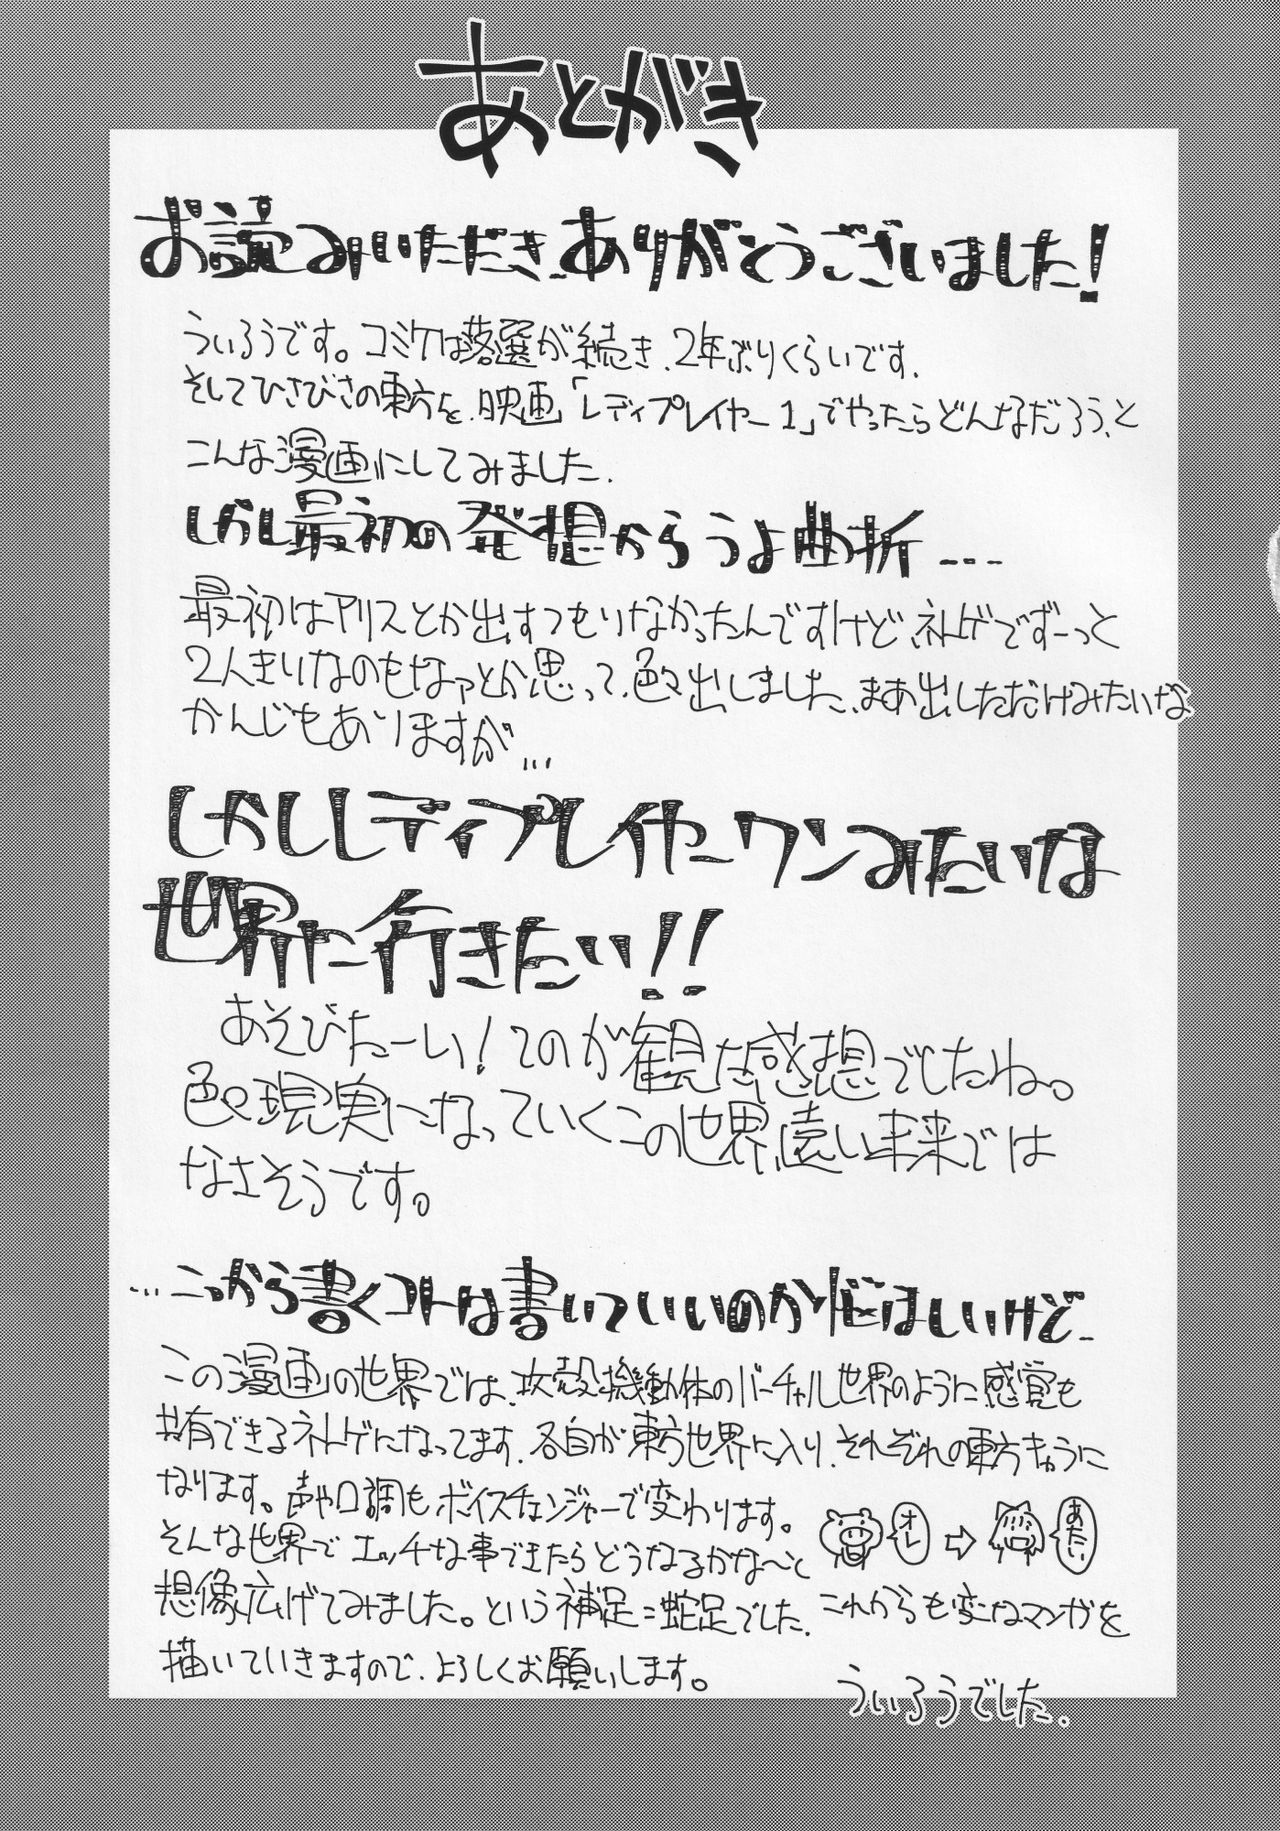 あとがき
お読みいただき、ありがとうございました!
ういろうです。コミケは落選が続き、2年ぶりくらいです。
そしてひさびさの東方を、映画「レディプレイヤー1」でやったらどんなだろう、と
こんな漫画にしてみました。
しかし最初の発想からうよ曲折...
最初はアリスとか出すつもりなかったんですけど、ネトゲでずーっと
2人きりなのもなァとか思って、色々出しました、まあ出しただけみたいな
かんじもありますが...
しかしレディプレイヤーワンみたいな
世界に行きたい!!
あそびたーい!てのが観た感想でしたね。
色々現実になっていくこの世界、遠い未来では
なさそうです。
...こっから書くコトは書いていいのか悩ましいけど、
この漫画の世界では、攻殻機動体のバーチャル世界のように感覚も
共有できるネトゲになってます、各自が東方世界に入り、それぞれの東方キャラに
なります。声や口調もボイスチェンジャーで変わります。
そんな世界でエッチな事できたらどうなるかな〜と
オレ ⇨ あたい
想像広げてみました。という補足=蛇足でした、これからも変なマンガを
描いていきますので、よろしくお願いします。
ういろうでした。